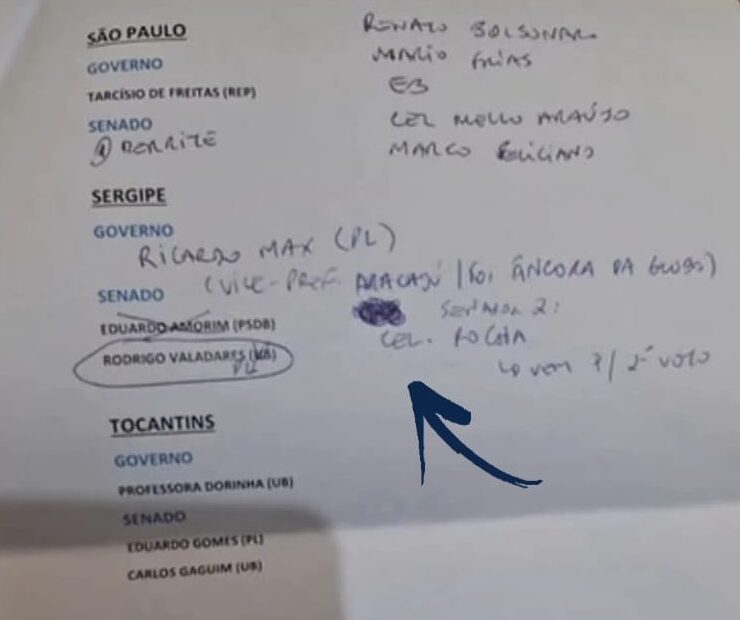 SÃO PAULO
GOVERNO
TARCÍSIO DE FREITAS (REP)
SENADO
① DERRITE
RENATO BOLSONARO
MARIO FRIAS
EB
CEL MELLO ARAÚJO
MARCO FELICIANO
SERGIPE
GOVERNO
RICARDO MAX (PL)
(VICE-PREF. ARACAJÚ / FOI ÂNCORA DA GLOBO)
SENADO
EDUARDO AMORIM (PSDB)
RODRIGO VALADARES (UB)
PL
SENADOR 2:
CEL. ROCHA
VEM P/ 2º VOTO
TOCANTINS
GOVERNO
PROFESSORA DORINHA (UB)
SENADO
EDUARDO GOMES (PL)
CARLOS GAGUIM (UB)